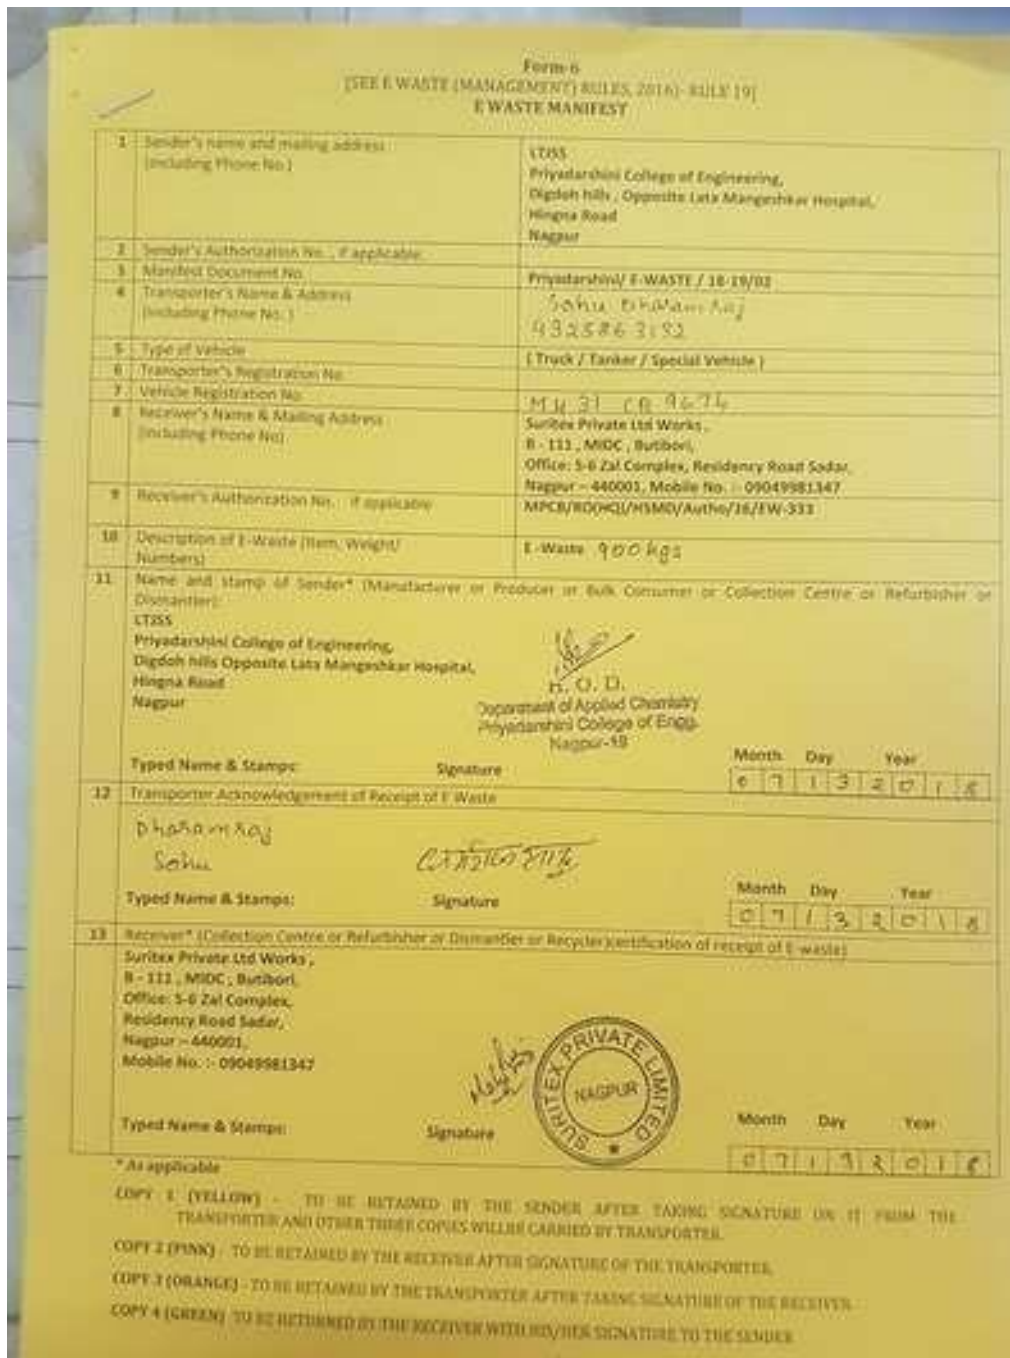 Form-6
[SEE E WASTE (MANAGEMENT) RULES, 2016)- RULE 19]
E WASTE MANIFEST
1 Sender's name and mailing address (including Phone No.)
LTJSS
Priyadarshini College of Engineering,
Digdoh hills , Opposite Lata Mangeshkar Hospital,
Hingna Road
Nagpur
2 Sender's Authorization No. , if applicable.
3 Manifest Document No. Priyadarshini/ E-WASTE / 18-19/02
4 Transporter's Name & Address (including Phone No. )
Sahu Dharamraj
5 Type of Vehicle ( Truck / Tanker / Special Vehicle )
6 Transporter's Registration No.
7 Vehicle Registration No. MH 31 CB 9674
8 Receiver's Name & Mailing Address (including Phone No)
Suritex Private Ltd Works ,
B - 111 , MIDC , Butibori,
Office: 5-6 Zal Complex, Residency Road Sadar,
Nagpur – 440001, Mobile No. :- 09049981347
9 Receiver's Authorization No. , if applicable MPCB/RO(HQ)/HSMD/Autho/16/EW-333
10 Description of E-Waste (Item, Weight/ Numbers) E-Waste 900 kgs
11 Name and stamp of Sender* (Manufacturer or Producer or Bulk Consumer or Collection Centre or Refurbisher or
Dismantler):
LTJSS
Priyadarshini College of Engineering,
Digdoh hills Opposite Lata Mangeshkar Hospital,
Hingna Road
Nagpur
H. O. D.
Department of Applied Chemistry
Priyadarshini College of Engg.
Nagpur-19
Typed Name & Stamps: Signature Month Day Year
0 7 1 3 2 0 1 8
12 Transporter Acknowledgement of Receipt of E Waste
Dharamraj
Sahu
Typed Name & Stamps: Signature Month Day Year
0 7 1 3 2 0 1 8
13 Receiver* (Collection Centre or Refurbisher or Dismantler or Recycler)certification of receipt of E-waste)
Suritex Private Ltd Works ,
B - 111 , MIDC , Butibori,
Office: 5-6 Zal Complex,
Residency Road Sadar,
Nagpur – 440001,
Mobile No. :- 09049981347
SURITEX PRIVATE LIMITED
NAGPUR
Typed Name & Stamps: Signature Month Day Year
0 7 1 3 2 0 1 8
* As applicable
COPY 1 (YELLOW) - TO BE RETAINED BY THE SENDER AFTER TAKING SIGNATURE ON IT FROM THE
TRANSPORTER AND OTHER THREE COPIES WILLBE CARRIED BY TRANSPORTER.
COPY 2 (PINK) - TO BE RETAINED BY THE RECEIVER AFTER SIGNATURE OF THE TRANSPORTER.
COPY 3 (ORANGE) - TO BE RETAINED BY THE TRANSPORTER AFTER TAKING SIGNATURE OF THE RECEIVER.
COPY 4 (GREEN) TO BE RETURNED BY THE RECEIVER WITH HIS/HER SIGNATURE TO THE SENDER